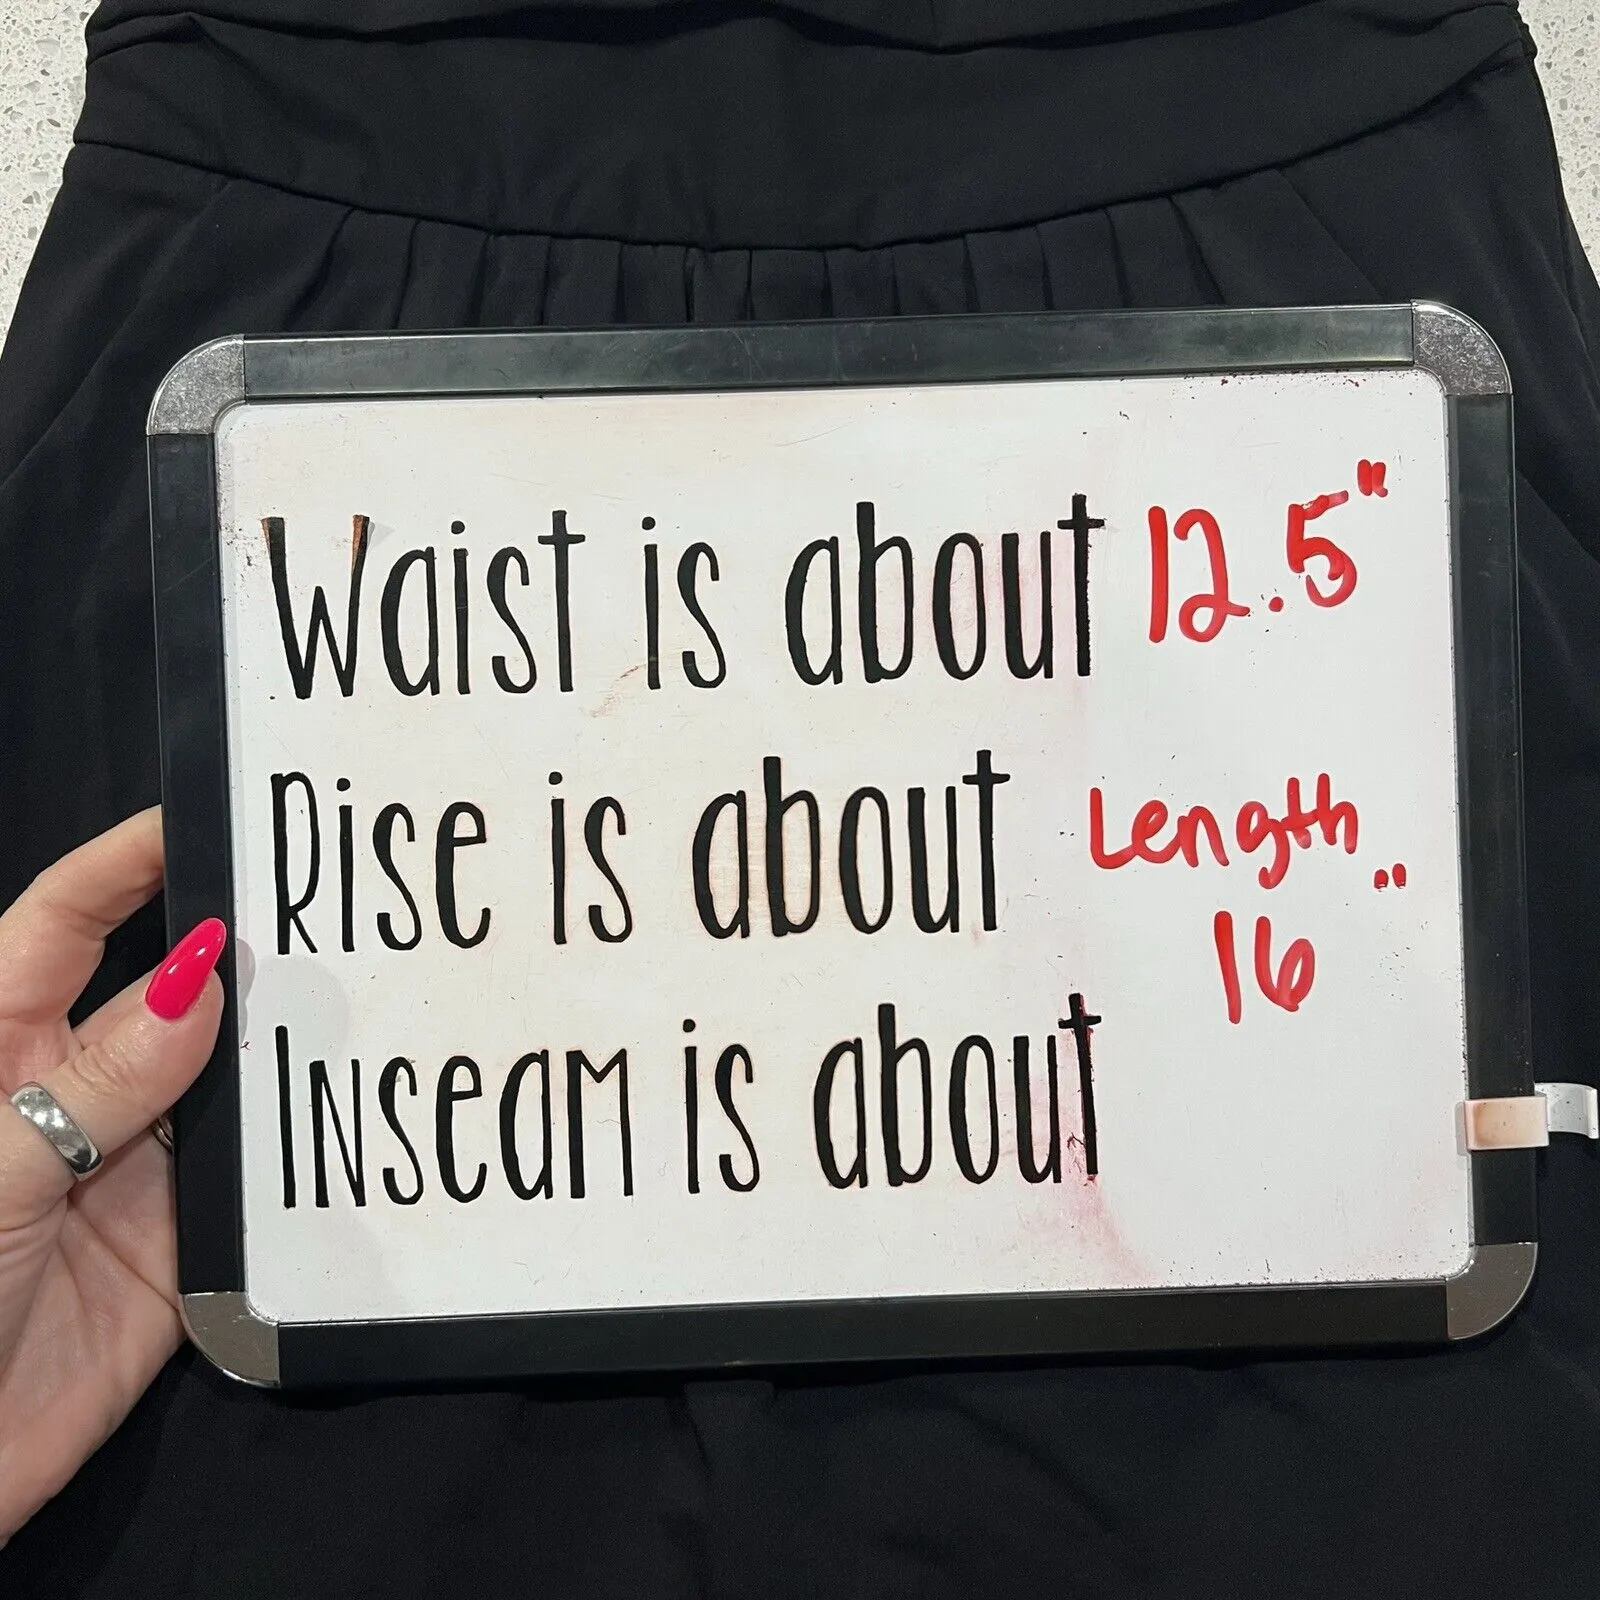 Waist is about 12.5"
Rise is about Length
16"
Inseam is about